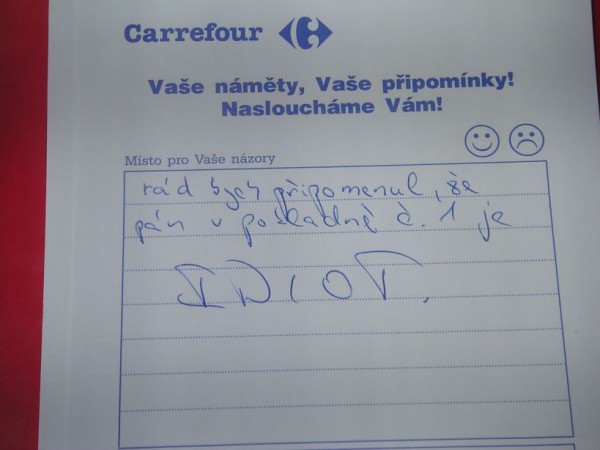 Carrefour
Vaše náměty, Vaše připomínky!
Nasloucháme Vám!
Místo pro Vaše názory
rád bych připomenul, že
pán v pokladně č. 1 je
IDIOT.